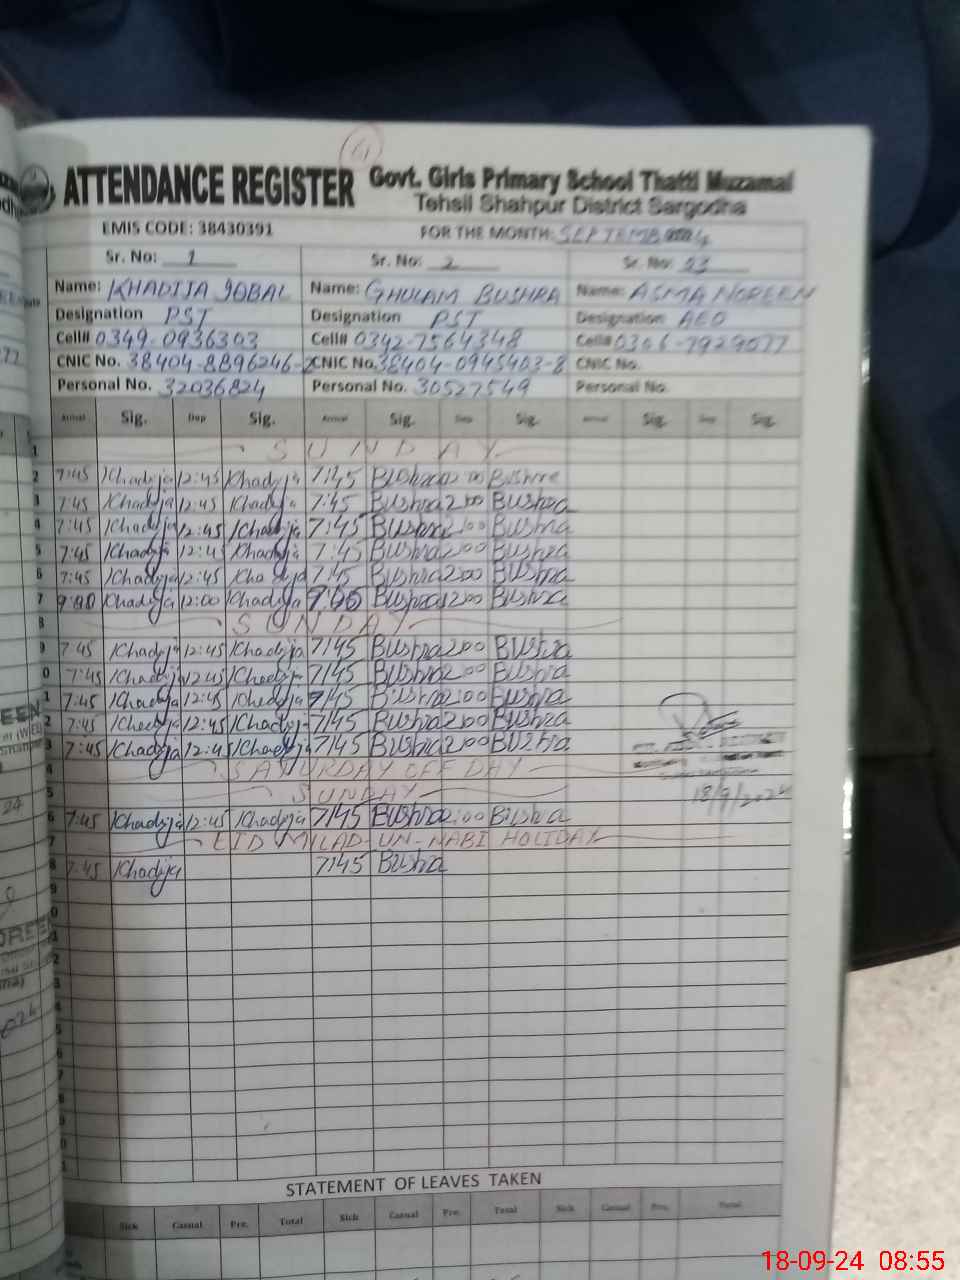 ATTENDANCE REGISTER Govt. Girls Primary School Thatti Muzamal
Tehsil Shahpur District Sargodha
EMIS CODE: 38430391 FOR THE MONTH: SEPTEMBER
Sr. No: 1 Sr. No: 2 Sr. No: 03
Name: KHADIJA IQBAL Name: GHULAM BUSHRA Name: ASMA NOREEN
Designation PST Designation PST Designation AEO
Cell# 0349-0936303 Cell# 0342-7564348 Cell# 0306-7929077
CNIC No. 38404-8896246-2 CNIC No. 38404-0945403-8 CNIC No.
Personal No. 32036824 Personal No. 30527549 Personal No.
Arrival Sig. Dep Sig. Arrival Sig. Dep Sig. Arrival Sig. Dep Sig.
1 SUNDAY
2 7:45 Khadija 12:45 Khadija 7:45 Bushra 2:00 Bushra
3 7:45 Khadija 12:45 Khadija 7:45 Bushra 2:00 Bushra
4 7:45 Khadija 12:45 Khadija 7:45 Bushra 2:00 Bushra
5 7:45 Khadija 12:45 Khadija 7:45 Bushra 2:00 Bushra
6 7:45 Khadija 12:45 Khadija 7:45 Bushra 2:00 Bushra
7 9:00 Khadija 12:00 Khadija 9:00 Bushra 12:00 Bushra
8 SUNDAY
9 7:45 Khadija 12:45 Khadija 7:45 Bushra 2:00 Bushra
0 7:45 Khadija 12:45 Khadija 7:45 Bushra 2:00 Bushra
1 7:45 Khadija 12:45 Khadija 7:45 Bushra 2:00 Bushra
2 7:45 Khadija 12:45 Khadija 7:45 Bushra 2:00 Bushra
3 7:45 Khadija 12:45 Khadija 7:45 Bushra 2:00 Bushra
4 SATURDAY OFF DAY
5 SUNDAY 18/9/2024
6 7:45 Khadija 12:45 Khadija 7:45 Bushra 2:00 Bushra
7 EID MILAD-UN-NABI HOLIDAY
8 7:45 Khadija 7:45 Bushra
9
0
1
2
3
4
5
6
7
8
9
0
1
STATEMENT OF LEAVES TAKEN
Sick Casual Pre. Total Sick Casual Pre. Total Sick Casual Pre. Total
18-09-24 08:55